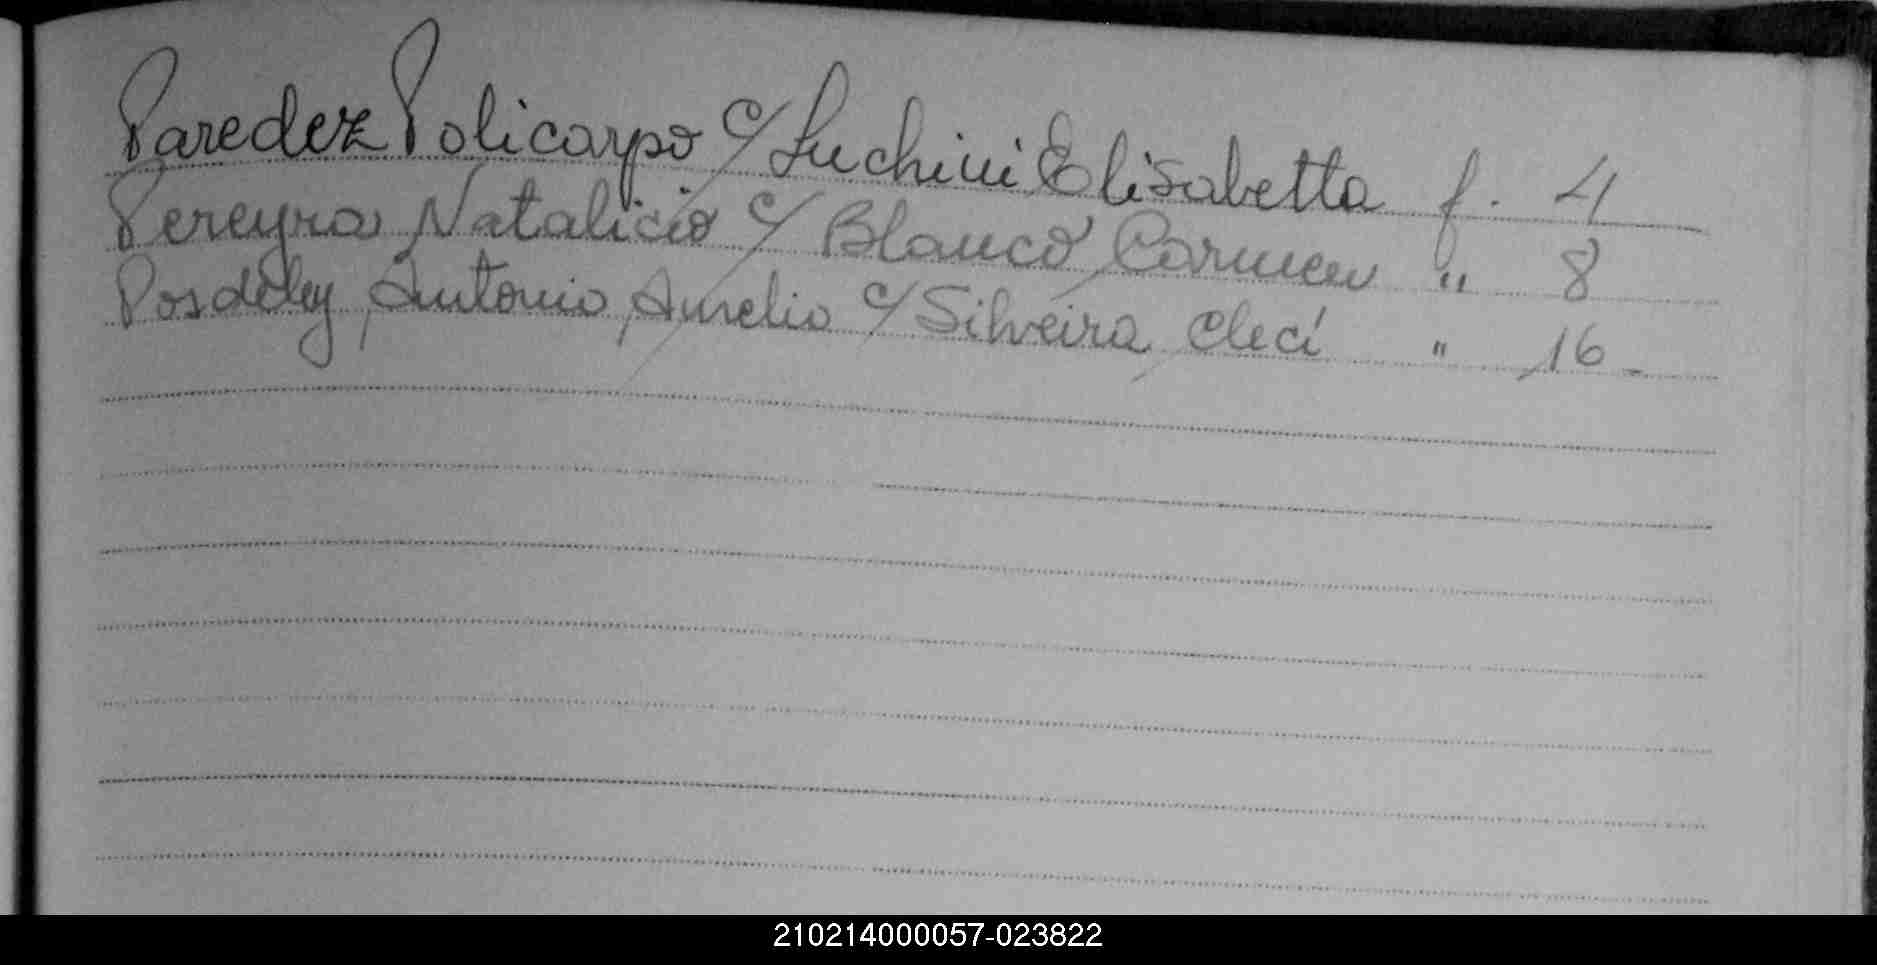 Paredez Policarpo c/ Luchini Elisabetta f. 4
Pereyra Natalicio c/ Blanco Carmen " 8
Posdeley, Antonio Aurelio c/ Silveira, Clecí " 16-
210214000057-023822